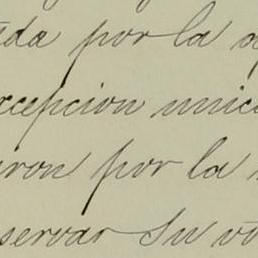 ida por la
xcepcion unica
aron por la
servar su vo